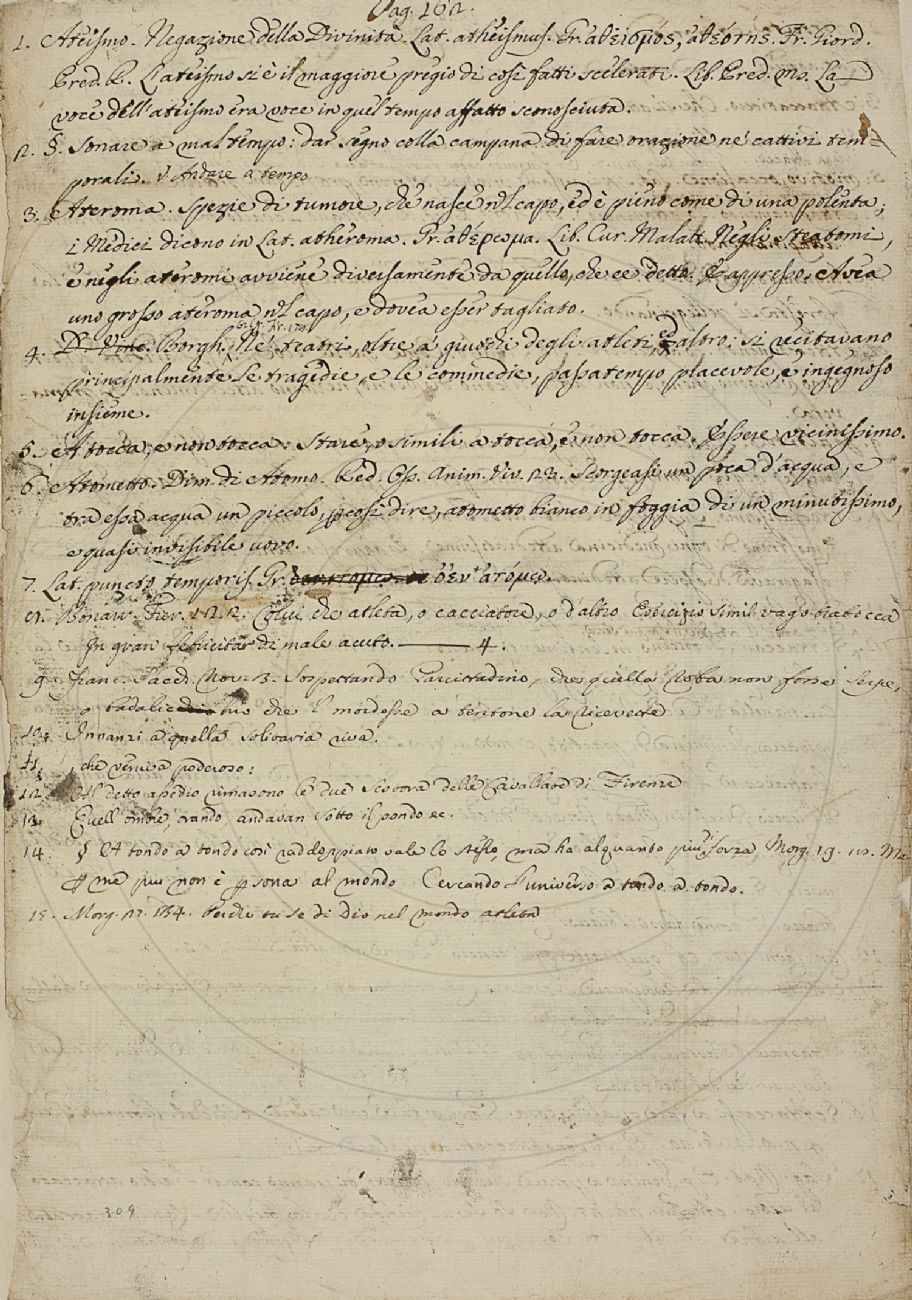 Pag. 162.
1. Ateismo. Negazione della Divinità. Lat. atheismus. Gr. ἀθεισμός, ἀθεότης. Fr. Giord.
Pred. R. L'ateismo si è il maggiore pregio di così fatti scelerati. Lib. Pred. ms. La
voce dell'ateismo era voce in quel tempo affatto sconosciuta.
2. §. Sonare a mal tempo: dar segno colla campana di fare orazione ne' cattivi tem=
porali. v. Andare a tempo
3. Ateroma. Spezie di tumore, che nasce nel capo, ed è pieno come di una polenta;
i Medici dicono in Lat. atheroma. Gr. ἀθέρωμα. Lib. Cur. Malatt. Negli steatomi,
e negli ateromi avviene diversamente da quello, che è detto. E appresso. Avea
uno grosso ateroma nel capo, e dovea esser tagliato.
4. Borgh. Ne' teatri, oltre a' giuochi degli atleti, ed altro: si recitavano
principalmente le tragedie, e le commedie, passatempo piacevole, e ingegnoso
insieme.
5. A tocca, e non tocca. Stare, o simili a tocca, e non tocca. Essere vicinissimo.
6. Atometto. Dim. di Atomo. Red. Oss. Anim. Viv. 23. Scorgeasi un poca d'acqua, e
tra essa acqua un piccolo, per così dire, atometto bianco in foggia di un minutissimo,
e quasi invisibile uovo.
7. Lat. puncto temporis. Gr. ἐν ἀτόμῳ.
Bonarr. Fier. 1. 2. 2. Colui che atleta, o cacciatore, o d'altro Esercizio simil vago trabocca
In gran felicitar di male acuto. — 4.
9. Franc. Sacch. Nov. 13. Sospettando Parcittadino, che quella Roba non fosse Serpe,
o badalischio che 'l mordesse a tentone la ricevette
10. Innanzi a quella solitaria riva.
11. , che veniva poderoso:
12. Al detto assedio rimasono le due sestora delle Cavallate di Firenze
13. Quell'ombre, orando andavan sotto il pondo ec.
14. § A tondo a tondo così raddoppiato vale lo stesso, ma ha alquanto più forza Morg. 19.
me più non è persona al mondo Cercando l'universo a tondo a tondo.
15. Morg. 134. Perchè tu se di Dio nel mondo atleta
309